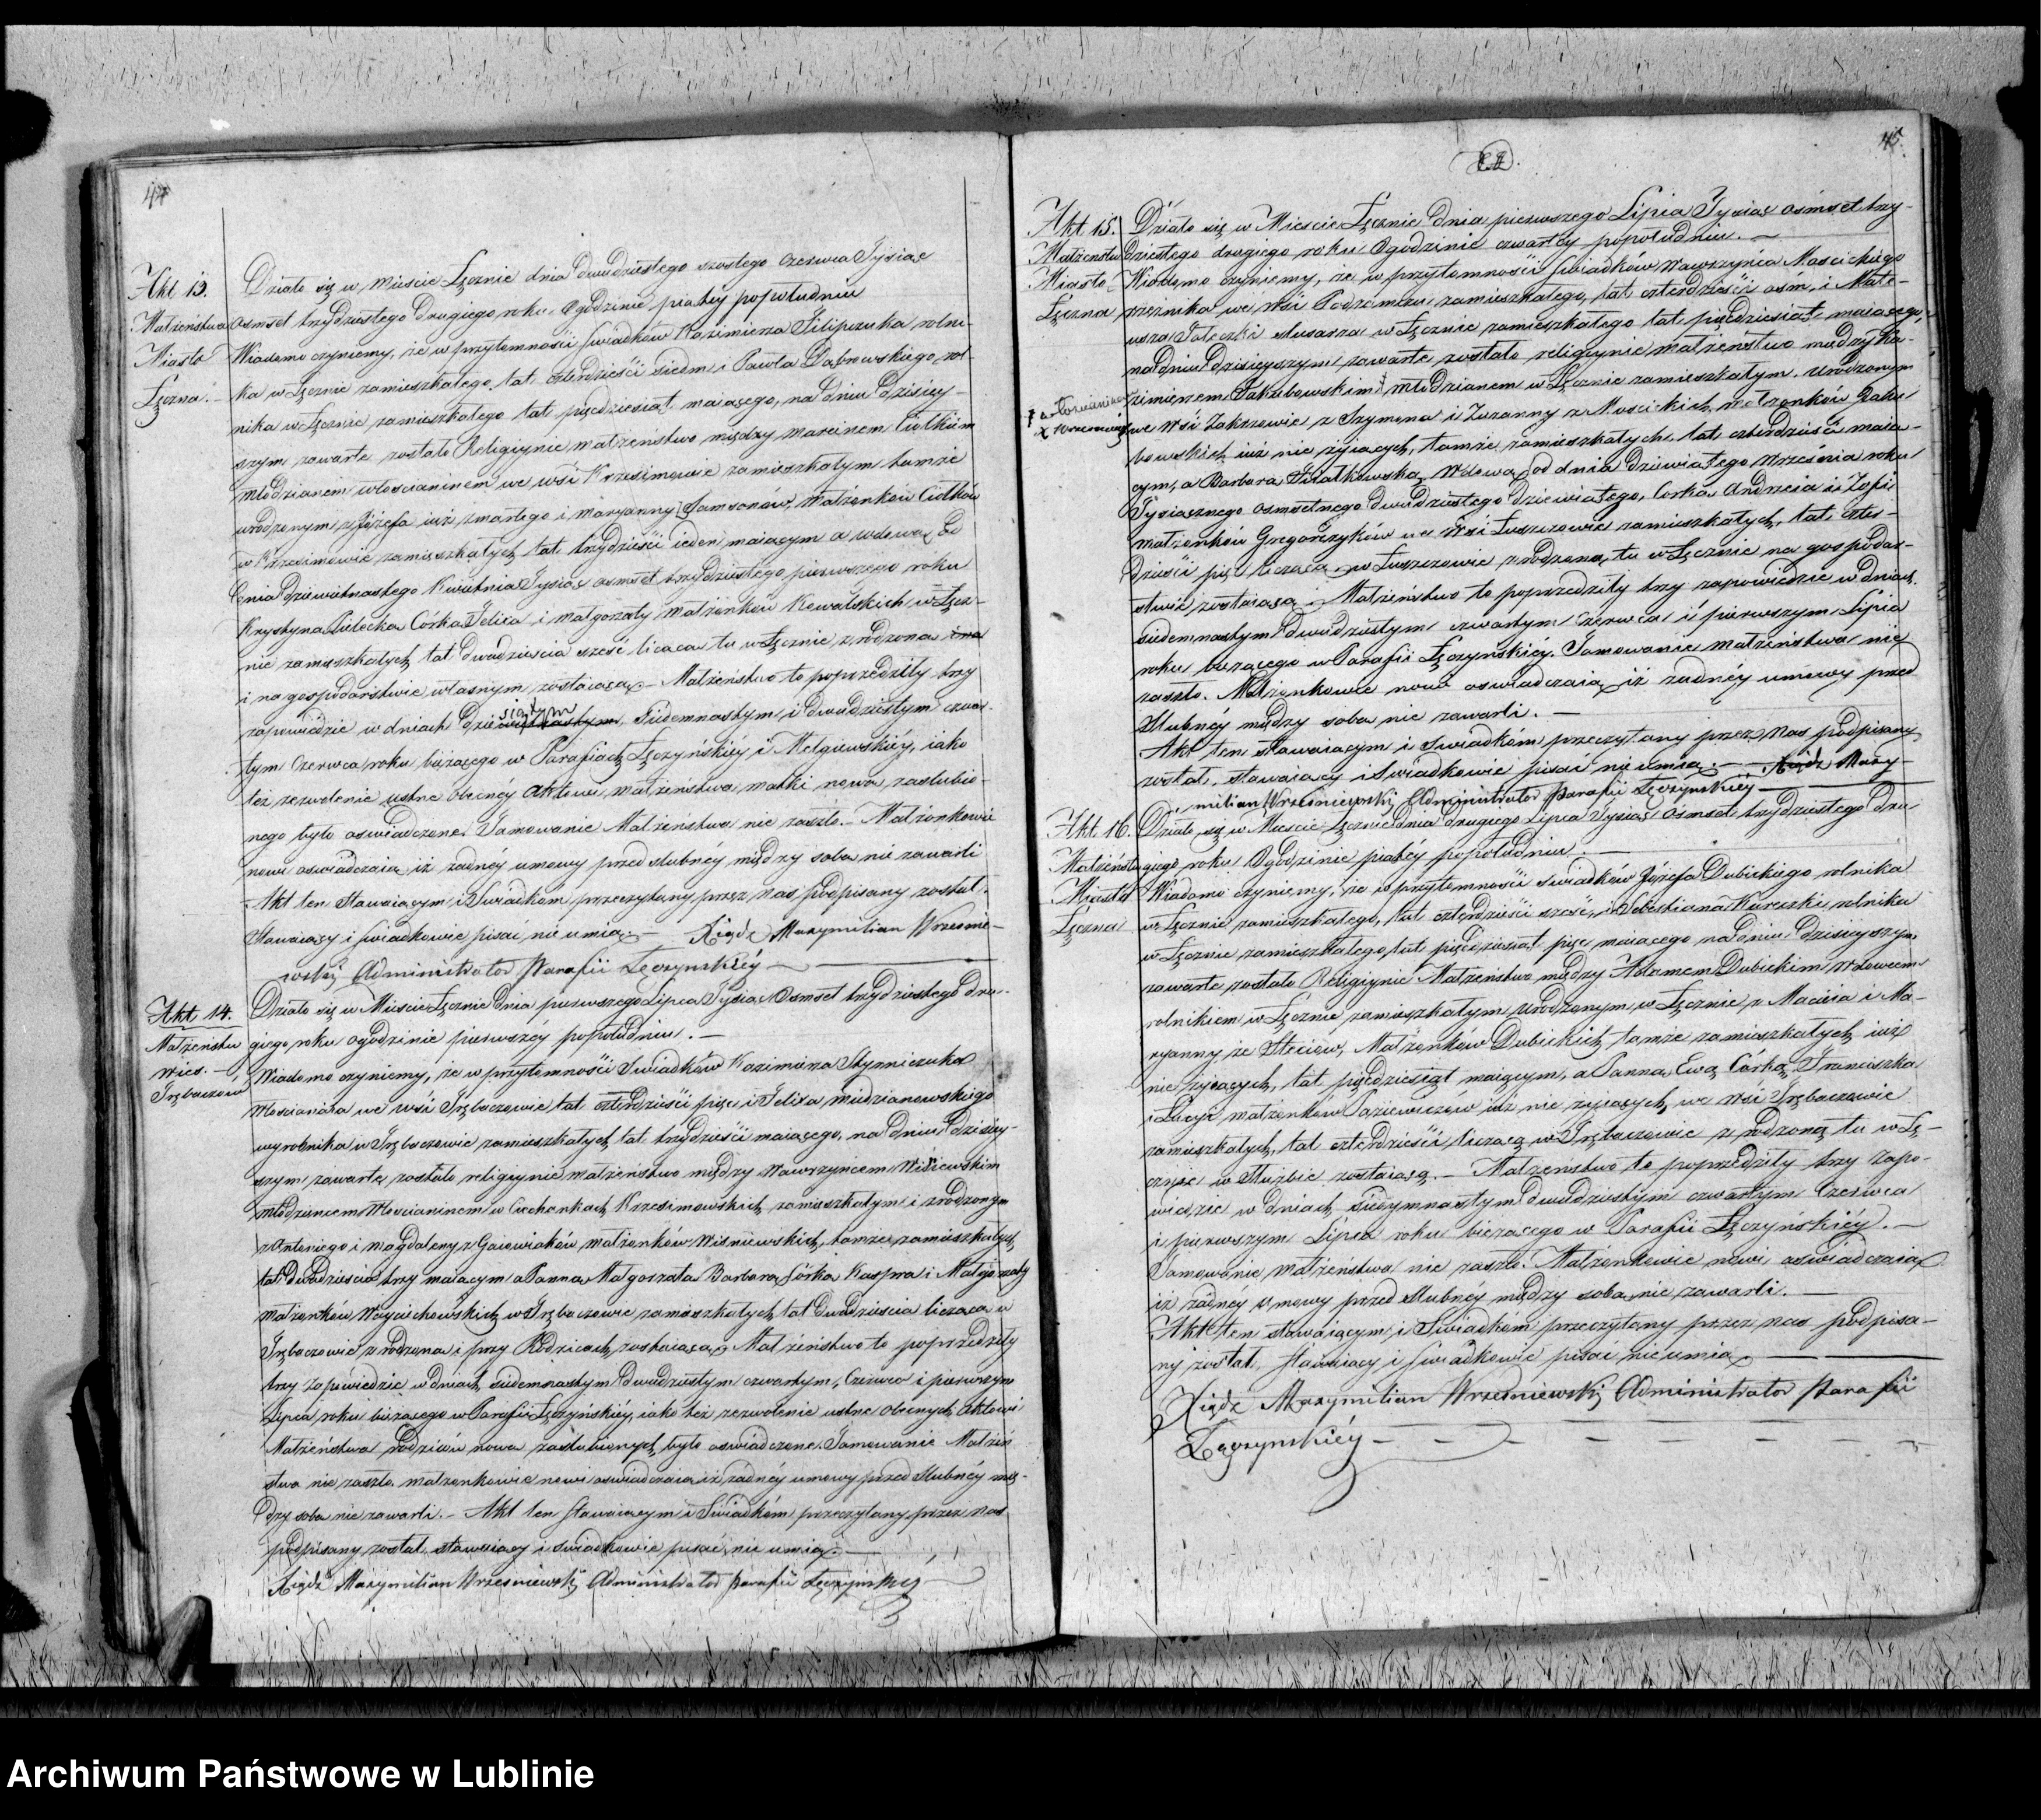 44
Akt 13.
Małżeństwa
Miasto
Łęczna.
Działo się w Mieście Łęcznie dnia dwudziestego szostego Czerwca Tysiąc
osmset trzydziestego drugiego roku. Ogodzinie piątey popołudniu
Wiadomo czyniemy, że w przytomności Swiadków Kazimierza Filipczuka rolni-
ka w Łęcznie zamieszkałego, lat czterdzieści siedm i Pawła Dąbrowskiego, rol-
nika w Łęcznie zamieszkałego lat pięcdziesiąt maiącego, na dniu dzisiey-
szym zawarte zostało Religiynie małżeństwo między Marcinem Ciołkiem
młodzianem włoscianinem we wsi Krzesimowie zamieszkałym tamże
urodzonym z Józefa iuż zmarłego i Maryanny z Samsonów, Małżonków Ciołków
w Krzesimowie zamieszkałych, lat trzydzieści ieden maiącym a wdową od
dnia dziewietnastego Kwietnia Tysiąc osmset trzydziestego pierwszego roku
Krystyna Córka Felixa i Małgorzaty małżonków Kowalskich w Łęcz-
nie zamieszkałych lat dwadzieścia sześć licząca tu w Łęcznie zrodzona
i na gospodarstwie własnym zostaiącą – Małżeństwo to poprzedziły trzy
zapowiedzie w dniach Siedemnastym i dwudziestym czwar-
tym Czerwca roku bieżącego w Parafiach Łęczyńskiéy i Mełgiewskiéy, iako
téż zezwolenie ustne obecnéy Aktowi małżeństwa matki nowo zaslubio-
nego było oswiadczone. Tamowanie Małżeństwa nie zaszło. – Małżonkowie
nowi oswiadczaią iż żadnéy umowy przed slubnéy między sobą nie zawarli
Akt ten Stawaiącym i Swiadkom przeczytany przez nas podpisany został.
Stawaiący i swiadkowie pisać nie umią. – Xiądz Maxymilian Wrzesnie-
wski, Administrator Parafii Łęczynskiéy
Akt 14.
Małżeństw
wies. –
Trębaczów
Działo się w Mieście Łęcznie dnia pierwszego Lipca Tysiąc Osmset trzydziestego dru-
giego roku ogodzinie pierwszéy popołudniu. –
Wiadomo czyniemy, że w przytomności Swiadków Kazimierza
Włoscianina we wsi Trębaczowie lat czterdzieści pięc i Felixa miedzianowskiego
wyrobnika w Trębaczowie zamieszkałych, lat trzydzieści maiącego, na dniu dzisiey-
szym zawarte zostało religiynie małżeństwo między Wawrzyńcem Wiśniewskim
młodzieniem Włoscianinem w Ciechankach Krzesimowskich zamieszkałym i zrodzonym
z Antoniego i Magdaleny z Gaiowiaków małżonków Wisniewskich, tamże zamieszkałych
lat dwadziescia trzy maiącym a Panną Małgorzatą Barbarą Córką Kaspra i Małgorzaty
małżonków Woyciechowskich w Trębaczowie zamieszkałych, lat dwadzieścia liczącą w
Trębaczowie zrodzona i przy Rodzicach zostaiącą. Małżeństwo to poprzedziły
trzy zapowiedzie w dniach siedemnastym dwudziestym czwartym, Czerwca i pierwszym
Lipca roku bieżącego w Parafii Łęczyńskiéy, iako też zezwolenie ustne obecnych Aktowi
Małżeństwa rodziców nowo zaslubionych, było oswiadczone. Tamowanie Małżeń
stwa nie zaszło. małżonkowie nowi oswiadczaią iż żadnéy umowy przed slubnéy mię-
dzy sobą nie zawarli. – Akt ten stawaiącym i Swiadkom przeczytany przez nas
podpisany został, stawaiący i swiadkowie pisać nie umią. –
Xiądz Maxymilian Wrzesniewski, Administrator parafii Łęczynskiéy
45.
Akt 15.
Małżeństw
Miasto
Łęczna
Działo się w Mieście Łęcznie dnia pierwszego Lipca Tysiąc osmset trzy-
dziestego drugiego roku Ogodzinie czwartéy popołudniu. –
Wiadomo czyniemy, że w przytomności Swiadków Wawrzyńca Moscickiego
rzeźnika we wsi Podzamczu zamieszkałego, lat czterdzieści osm, i Mate-
usza slusarza w Łęcznie zamieszkałego lat pięćdziesiąt maiącego,
na dniu dzisieyszym zawarte zostało religiynie małżeństwo między Ka-
zimierzem Jakubowskim młodzianem w Łęcznie zamieszkałym, urodzonym
we wsi Zakrzowie z Szymona i Zuzanny z Moscickich małżonków Jaku
bowskich iuż nie żyiących, tamże zamieszkałych lat czterdzieści maią-
cym, a Barbarą wdową od dnia dziewiątego Września roku
Tysiącznego osmsetnego dwudziestego dziewiątego, Corką Andrzeia i Zofii
małżonków Gregorczyków we wsi Łuszczowie zamieszkałych, lat czter-
dzieści pięc liczącą w Łuszczowie zrodzona, tu w Łęcznie na gospodar-
stwie zostaiącą. Małżeństwo to poprzedziły trzy zapowiedzie w dniach
siedemnastym dwudziestym czwartym Czerwca i pierwszym Lipca
roku bieżącego w Parafii Łęczyńskiéy. Tamowanie małżeństwa nie
zaszło. Małżonkowie nowo oswiadczaią iż żadnéy umowy przed
slubnéy między sobą nie zawarli. –
Akt ten stawaiącym i Swiadkom przeczytany przez nas podpisany
został, stawaiący i Swiadkowie pisać nie umią. – Xiądz Maxy-
milian Wrześniewski, Administrator Parafii Łęczyńskiéy
Akt 16.
Małżeństw
Miasto
Łęczna
Działo się w Mieście Łęcznie dnia drugiego Lipca Tysiąc osmset trzydziestego dru
giego roku Ogodzinie piątéy popołudniu. –
Wiadomo czyniemy, że w przytomności swiadków Józefa Dubickiego rolnika
w Łęcznie zamieszkałego, lat czterdzieści sześć, i Sebastiana rolnika
w Łęcznie zamieszkałego, lat pięćdziesiąt pięc maiącego na dniu dzisieyszym
zawarte zostało Religiynie Małżeństwo między Adamem Dubickim Wdowcem
rolnikiem w Łęcznie zamieszkałym urodzonym w Łęcznie z Macieia i Ma-
ryanny ze Steciów, Małżonków Dubickich tamże zamieszkałych, iuż
nie żyiących, lat pięćdziesiąt maiącym, a Panną Ewą Córką Franciszka
i Łucyi małżonków iuż nie żyiących, we wsi Trębaczowie
zamieszkałych, lat czterdzieści liczącą w Trębaczowie zrodzoną tu w Łę-
cznie w służbie zostaiącą. – Małżeństwo to poprzedziły trzy zapo-
wiedzie w dniach siedymnastym dwudziestym czwartym Czerwca
i pierwszym Lipca roku bieżącego w Parafii Łęczyńskiéy. –
Tamowanie małżeństwa nie zaszło. Małżonkowie nowi oswiadczaią
iż żadnéy umowy przed slubnéy między sobą nie zawarli. –
Akt ten stawaiącym i Swiadkom przeczytany przez nas podpisa-
ny został, stawaiący i swiadkowie pisac nie umią
Xiądz Maxymilian Wrześniewski, Administrator Parafii
Łęczynskiéy –
Archiwum Państwowe w Lublinie